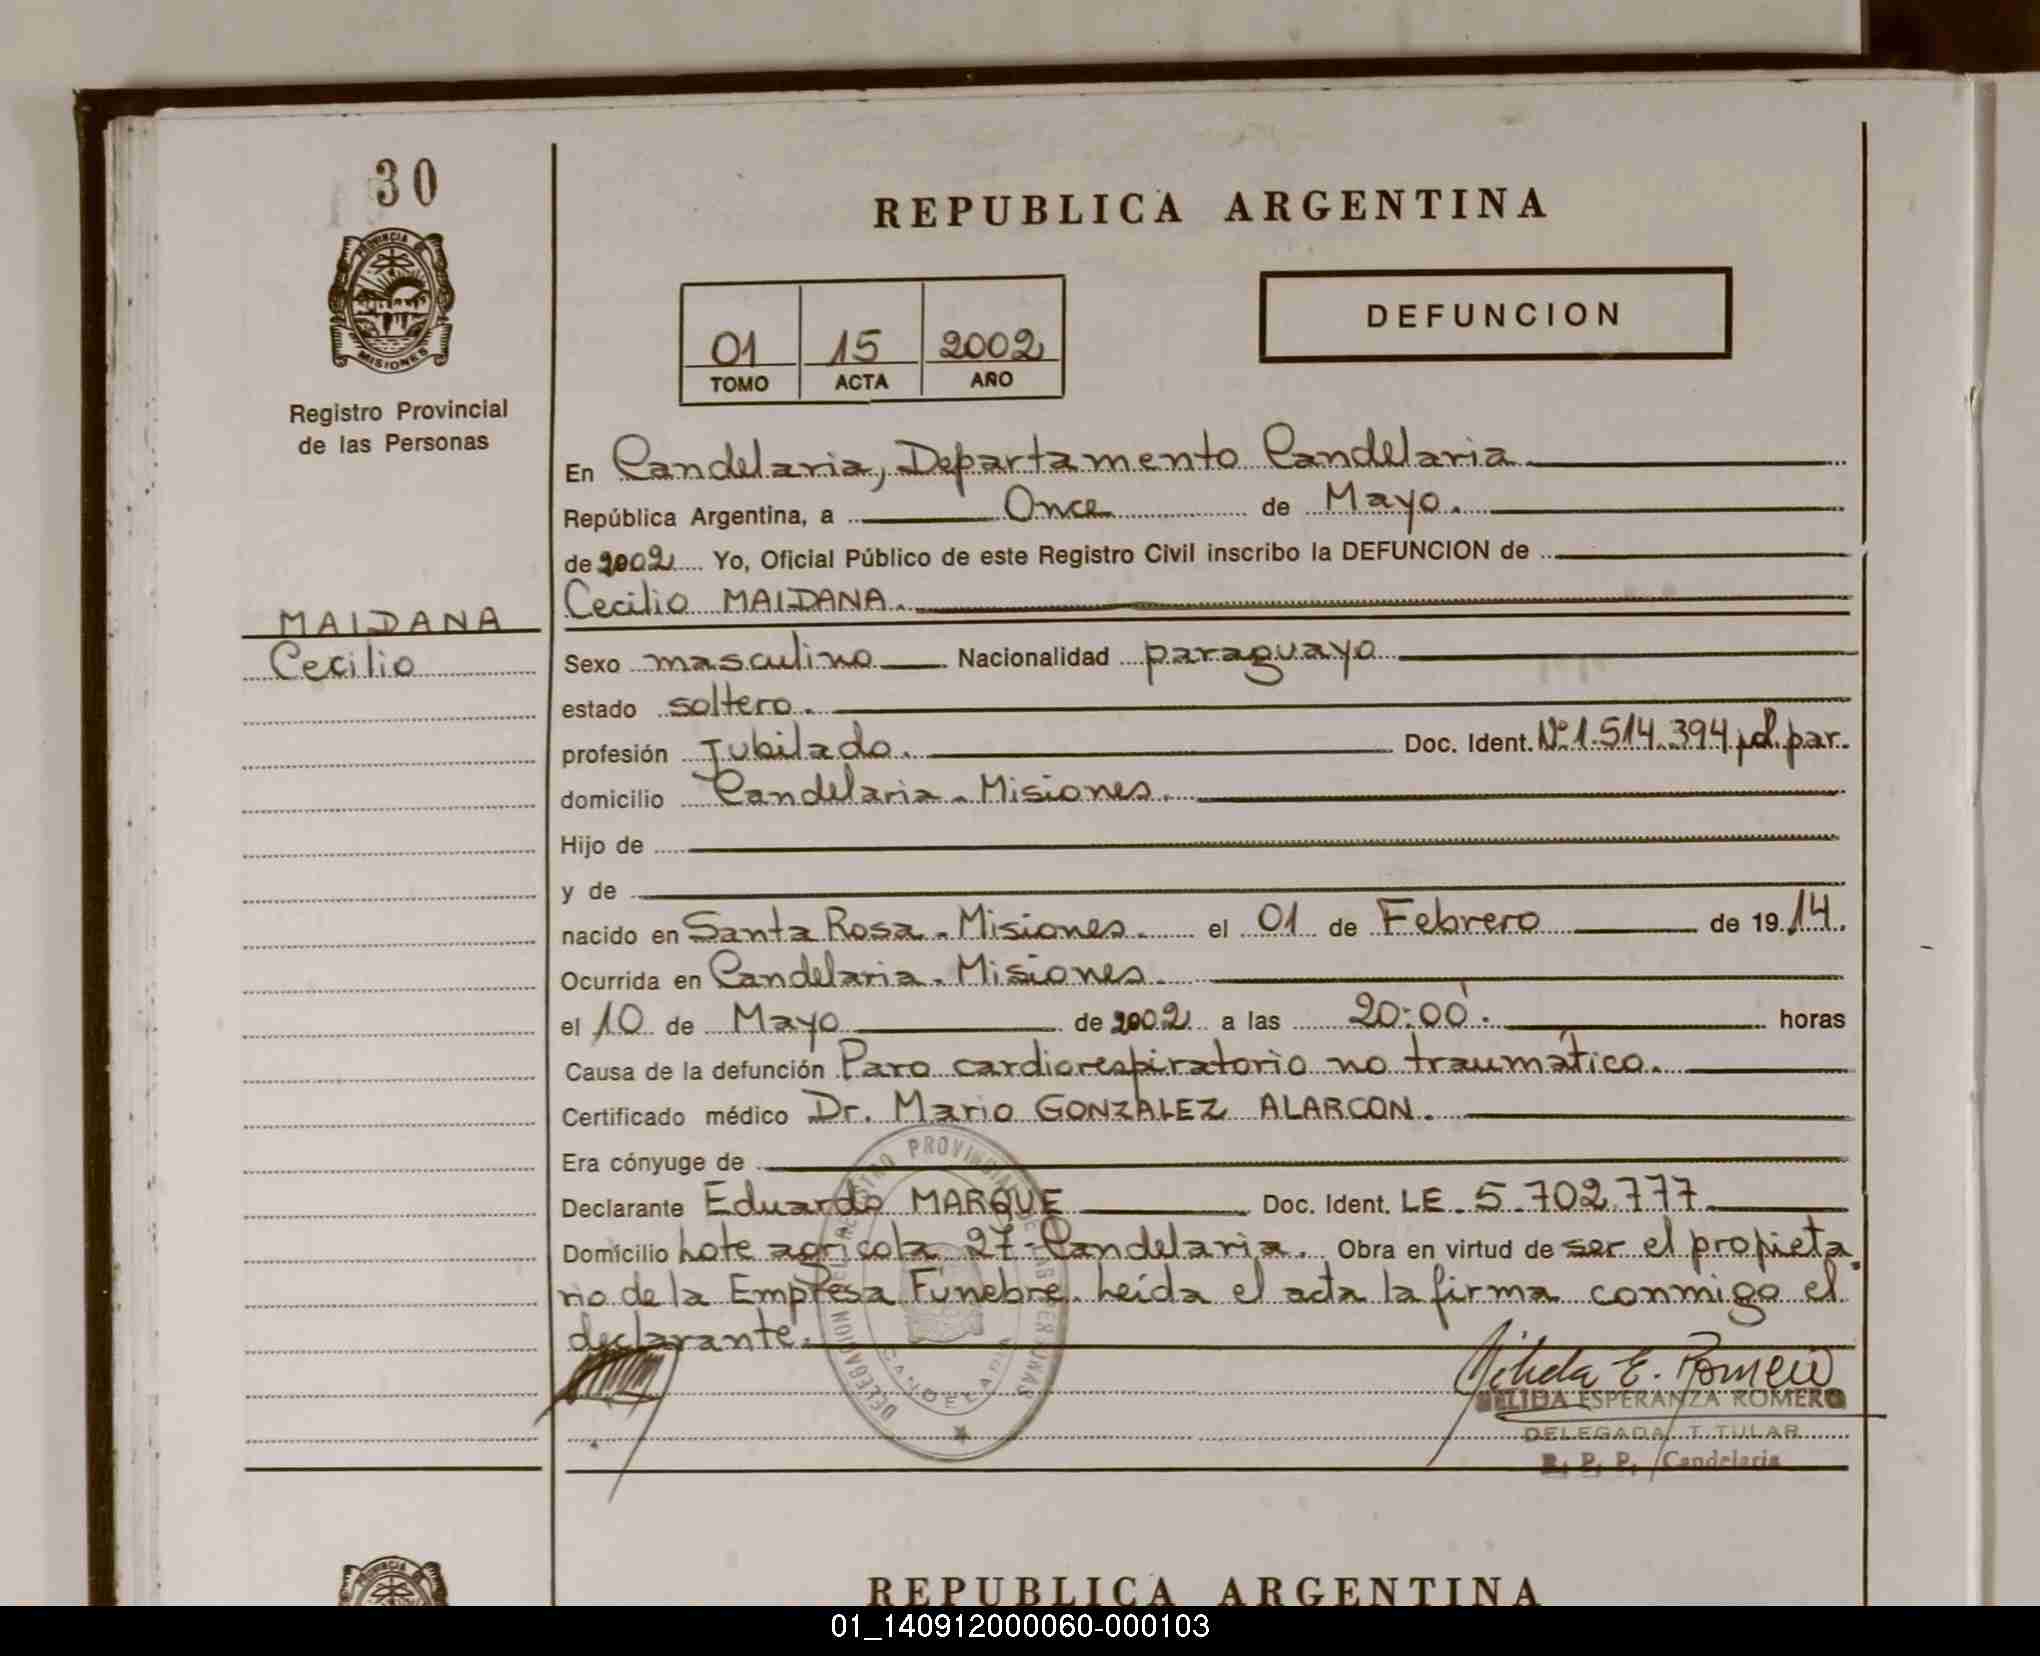 30
PROVINCIA DE
MISIONES
Registro Provincial
de las Personas
MAIDANA
Cecilio
REPUBLICA ARGENTINA
01 15 2002
TOMO ACTA AÑO
DEFUNCION
En Candelaria, Departamento Candelaria
República Argentina, a Once de Mayo.
de 2002 Yo, Oficial Público de este Registro Civil inscribo la DEFUNCION de
Cecilio MAIDANA.
Sexo masculino Nacionalidad paraguayo
estado soltero.
profesión Jubilado. Doc. Ident. Nº 1.514.394 pol. par.
domicilio Candelaria - Misiones.
Hijo de
y de
nacido en Santa Rosa - Misiones. el 01 de Febrero de 19 14.
Ocurrida en Candelaria - Misiones.
el 10 de Mayo de 2002 a las 20:00'. horas
Causa de la defunción Paro cardiorespiratorio no traumático.
Certificado médico Dr. Mario GONZALEZ ALARCON.
Era cónyuge de
Declarante Eduardo MARQUE Doc. Ident. LE 5.702.777
Domicilio Lote agricola 27 - Candelaria. Obra en virtud de ser el propieta
rio de la Empresa Fúnebre. Leída el acta la firma conmigo el
declarante.
DELEGACION DEL REGISTRO PROVINCIAL DE LAS PERSONAS
CANDELARIA
E. Romero
ESPERANZA ROMERO
DELEGADA TITULAR
R. P. P. Candelaria
REPUBLICA ARGENTINA
01_140912000060-000103